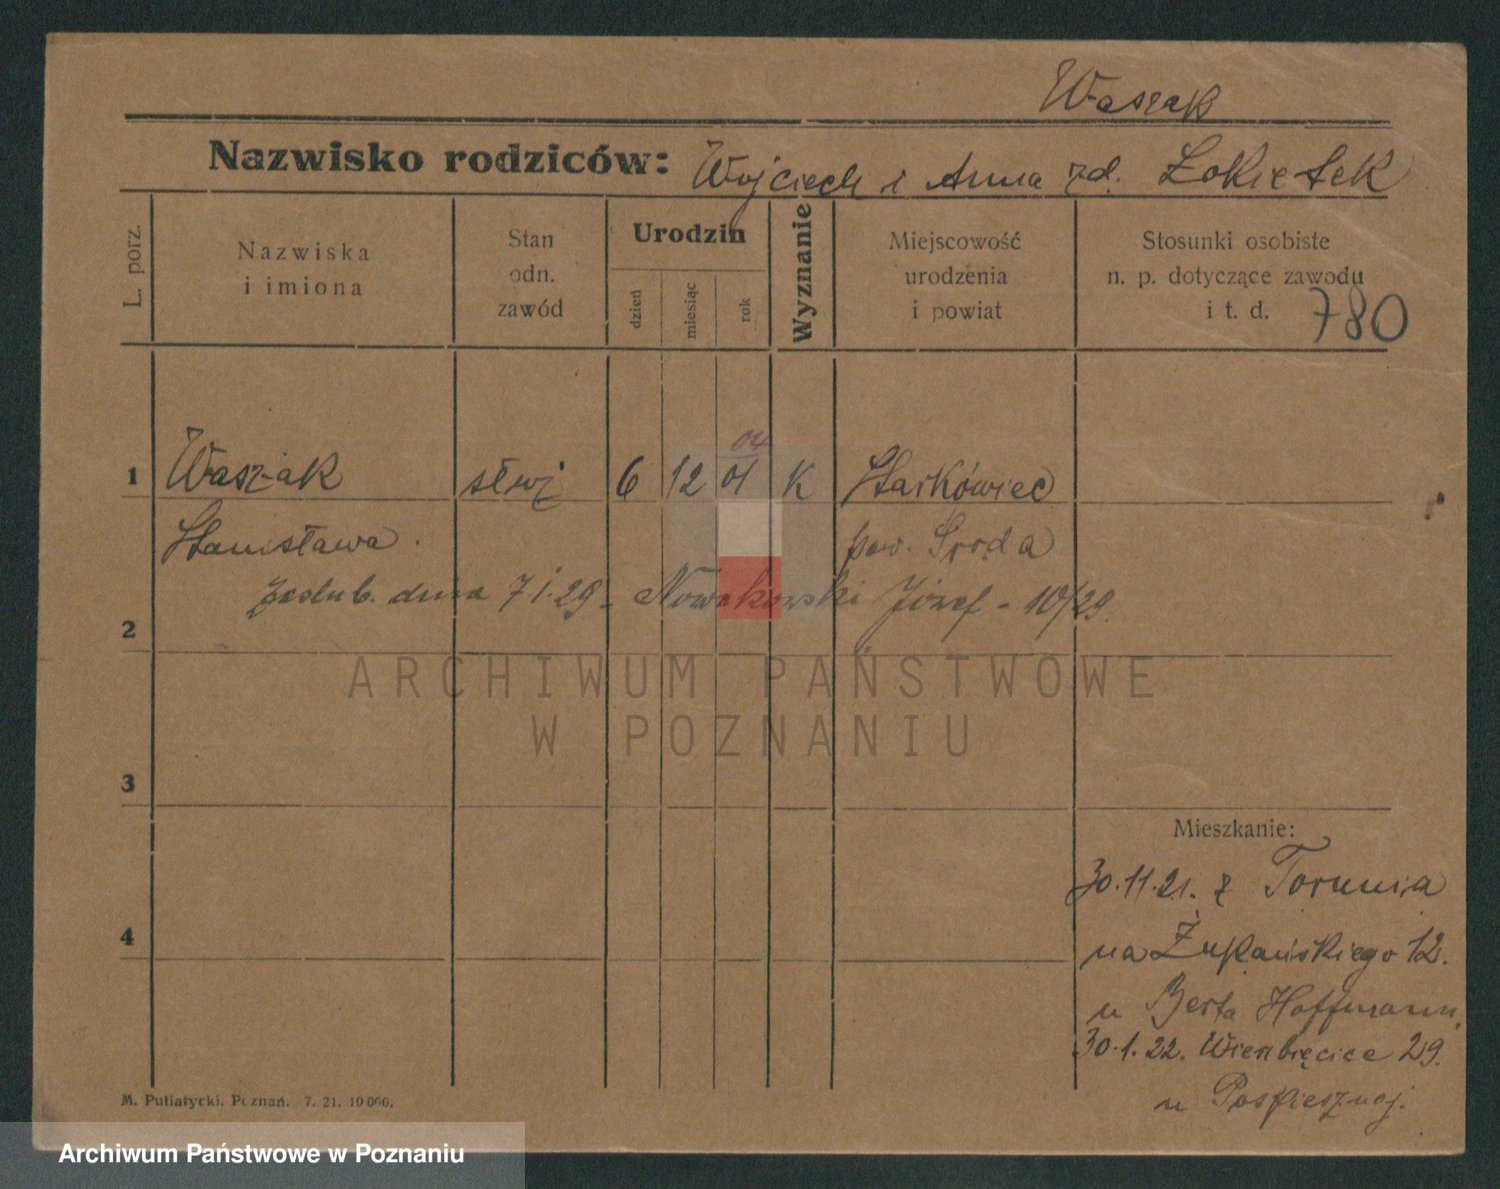 Waszak
Nazwisko rodziców: Wojciech i Anna zd. Łokietek
L. porz.
Nazwiska
i imiona
Stan
odn.
zawód
Urodzin
dzień
miesiąc
rok
Wyznanie
Miejscowość
urodzenia
i powiat
Stosunki osobiste
n. p. dotyczące zawodu
i t. d. 780
04
1 Waszak służ 6 12 01 K Starkówiec
Stanisława pow. Środa
zaslub. dnia 7 1.29 - Nowakowski Józef - 10/29.
2
ARCHIWUM PAŃSTWOWE
W POZNANIU
3
Mieszkanie:
30.11.21. z Torunia
4
na Żupańskiego 12.
u Berta Hoffmann.
30.1.22. Wierzbięcice 29.
u Pospiesznej.
M. Putiatycki. Poznań. 7. 21. 10 000.
Archiwum Państwowe w Poznaniu